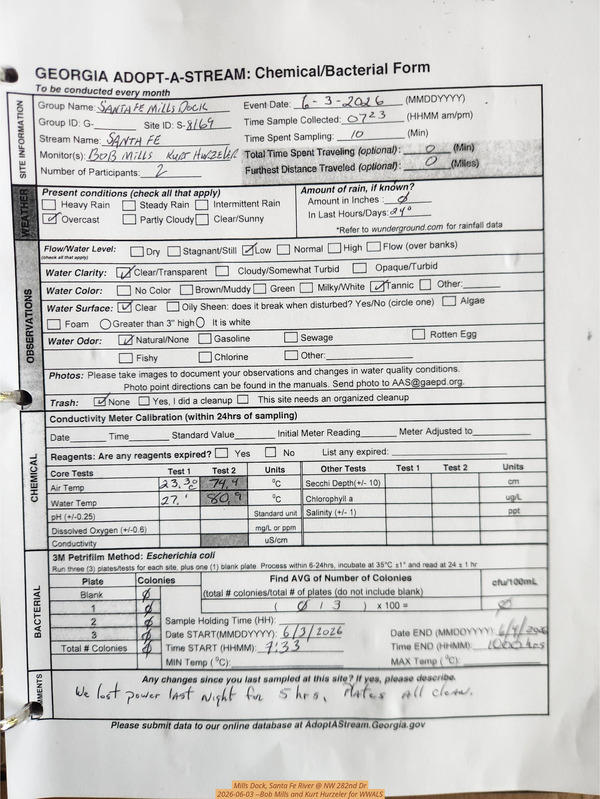 GEORGIA ADOPT-A-STREAM: Chemical/Bacterial Form
To be conducted every month
SITE INFORMATION
Group Name: SANTA FE Mills Dock
Event Date: 6-3-2026 (MMDDYYYY)
Group ID: G- Site ID: S-8169
Time Sample Collected: 0723 (HHMM am/pm)
Stream Name: SANTA FE
Time Spent Sampling: 10 (Min)
Monitor(s): BOB Mills KURT HURZELER
Total Time Spent Traveling (optional): 0 (Min)
Number of Participants: 2
Furthest Distance Traveled (optional): 0 (Miles)
WEATHER
Present conditions (check all that apply)
Heavy Rain Steady Rain Intermittent Rain
Overcast Partly Cloudy Clear/Sunny
Amount of rain, if known?
Amount in Inches : ∅
In Last Hours/Days:
*Refer to wunderground.com for rainfall data
OBSERVATIONS
Flow/Water Level: Dry Stagnant/Still Low Normal High Flow (over banks)
(check all that apply)
Water Clarity: Clear/Transparent Cloudy/Somewhat Turbid Opaque/Turbid
Water Color: No Color Brown/Muddy Green Milky/White Tannic Other:
Water Surface: Clear Oily Sheen: does it break when disturbed? Yes/No (circle one) Algae
Foam Greater than 3" high It is white
Water Odor: Natural/None Gasoline Sewage Rotten Egg
Fishy Chlorine Other:
Photos: Please take images to document your observations and changes in water quality conditions.
Photo point directions can be found in the manuals. Send photo to AAS@gaepd.org.
Trash: None Yes, I did a cleanup This site needs an organized cleanup
CHEMICAL
Conductivity Meter Calibration (within 24hrs of sampling)
Date Time Standard Value Initial Meter Reading Meter Adjusted to
Reagents: Are any reagents expired? Yes No List any expired:
Core Tests Test 1 Test 2 Units Other Tests Test 1 Test 2 Units
Air Temp 23.3 74.4 °C Secchi Depth(+/- 10) cm
Water Temp 27.1 80.9 °C Chlorophyll a ug/L
pH (+/-0.25) Standard unit Salinity (+/- 1) ppt
Dissolved Oxygen (+/-0.6) mg/L or ppm
Conductivity uS/cm
BACTERIAL
3M Petrifilm Method: Escherichia coli
Run three (3) plates/tests for each site, plus one (1) blank plate. Process within 6-24hrs, incubate at 35°C ±1° and read at 24 ± 1 hr
Plate Colonies Find AVG of Number of Colonies cfu/100mL
Blank ∅ (total # colonies/total # of plates (do not include blank)
1 ∅ ( ∅ / 3 ) x 100 = ∅
2 ∅ Sample Holding Time (HH):
3 ∅ Date START(MMDDYYYY): 6/3/2026 Date END (MMDDYYYY): 6/4/2026
Total # Colonies ∅ Time START (HHMM): 7:33 Time END (HHMM): 1000 hrs
MIN Temp (°C): MAX Temp (°C):
Any changes since you last sampled at this site? If yes, please describe.
We lost power last night for 5 hrs, Plates all clear.
Please submit data to our online database at AdoptAStream.Georgia.gov
Mills Dock, Santa Fe River @ NW 282nd Dr
2026-06-03 --Bob Mills and Kurt Hurzeler for WWALS